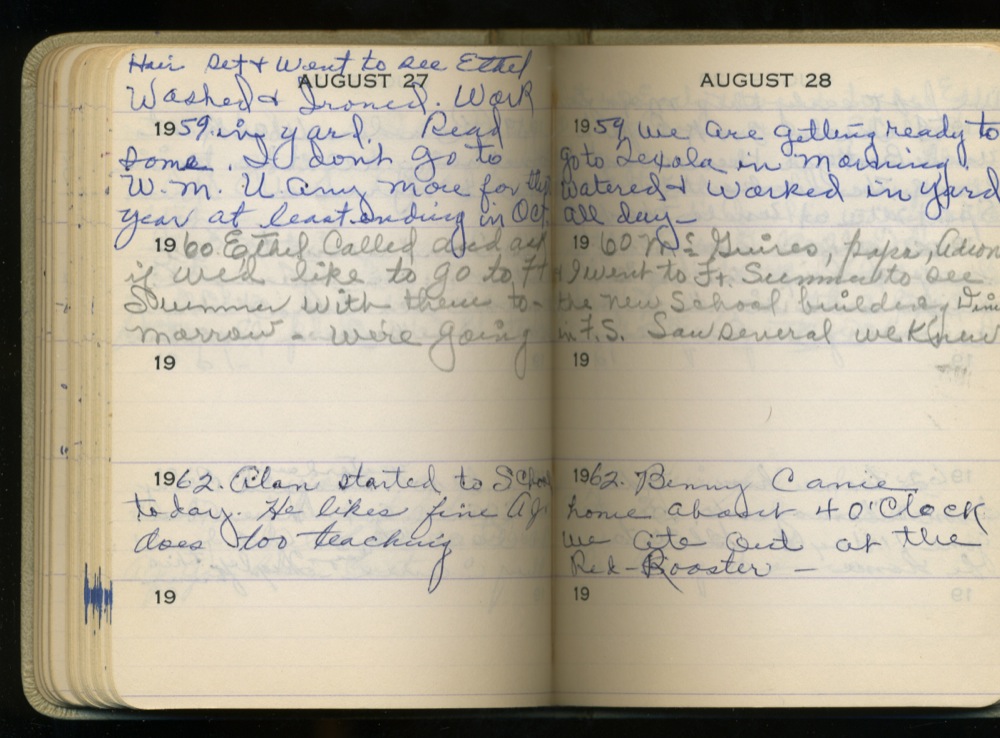 Hair set & Went to see Ethel
AUGUST 27
Washed & Ironed. Work
1959 in yard. Read
some. I dont go to
W. M. U. any more for this
year at least ending in Oct.
1960 Ethel Called and ask
if we'd like to go to Ft
Sumner with them to-
morrow - We're going
19
1962. Alan started to School
today. He likes fine AJ
does too teaching
19
AUGUST 28
1959 We are getting ready to
go to Texola in morning
Watered & worked in yard
all day -
1960 Mc Guires, papa,
& I went to Ft. Sumner to see
the new School building Dined
in F.S. Saw several we Knew
19
1962. Benny Came
home about 4 O'Clock
we ate Out at the
Red-Rooster -
19